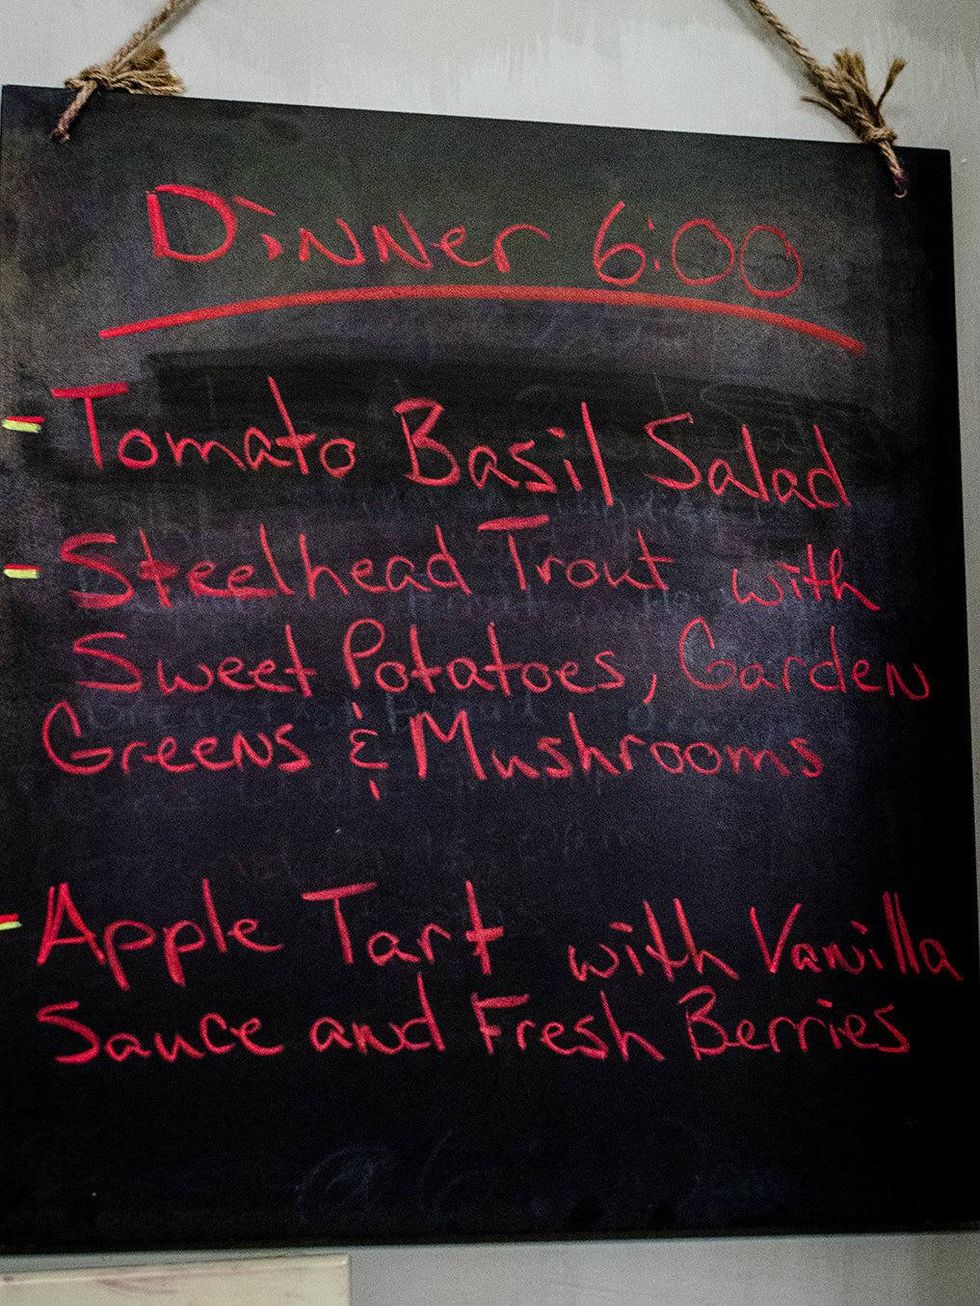 Dinner 6:00
- Tomato Basil Salad
- Steelhead Trout with
Sweet Potatoes, Garden
Greens & Mushrooms
- Apple Tart with Vanilla
Sauce and Fresh Berries